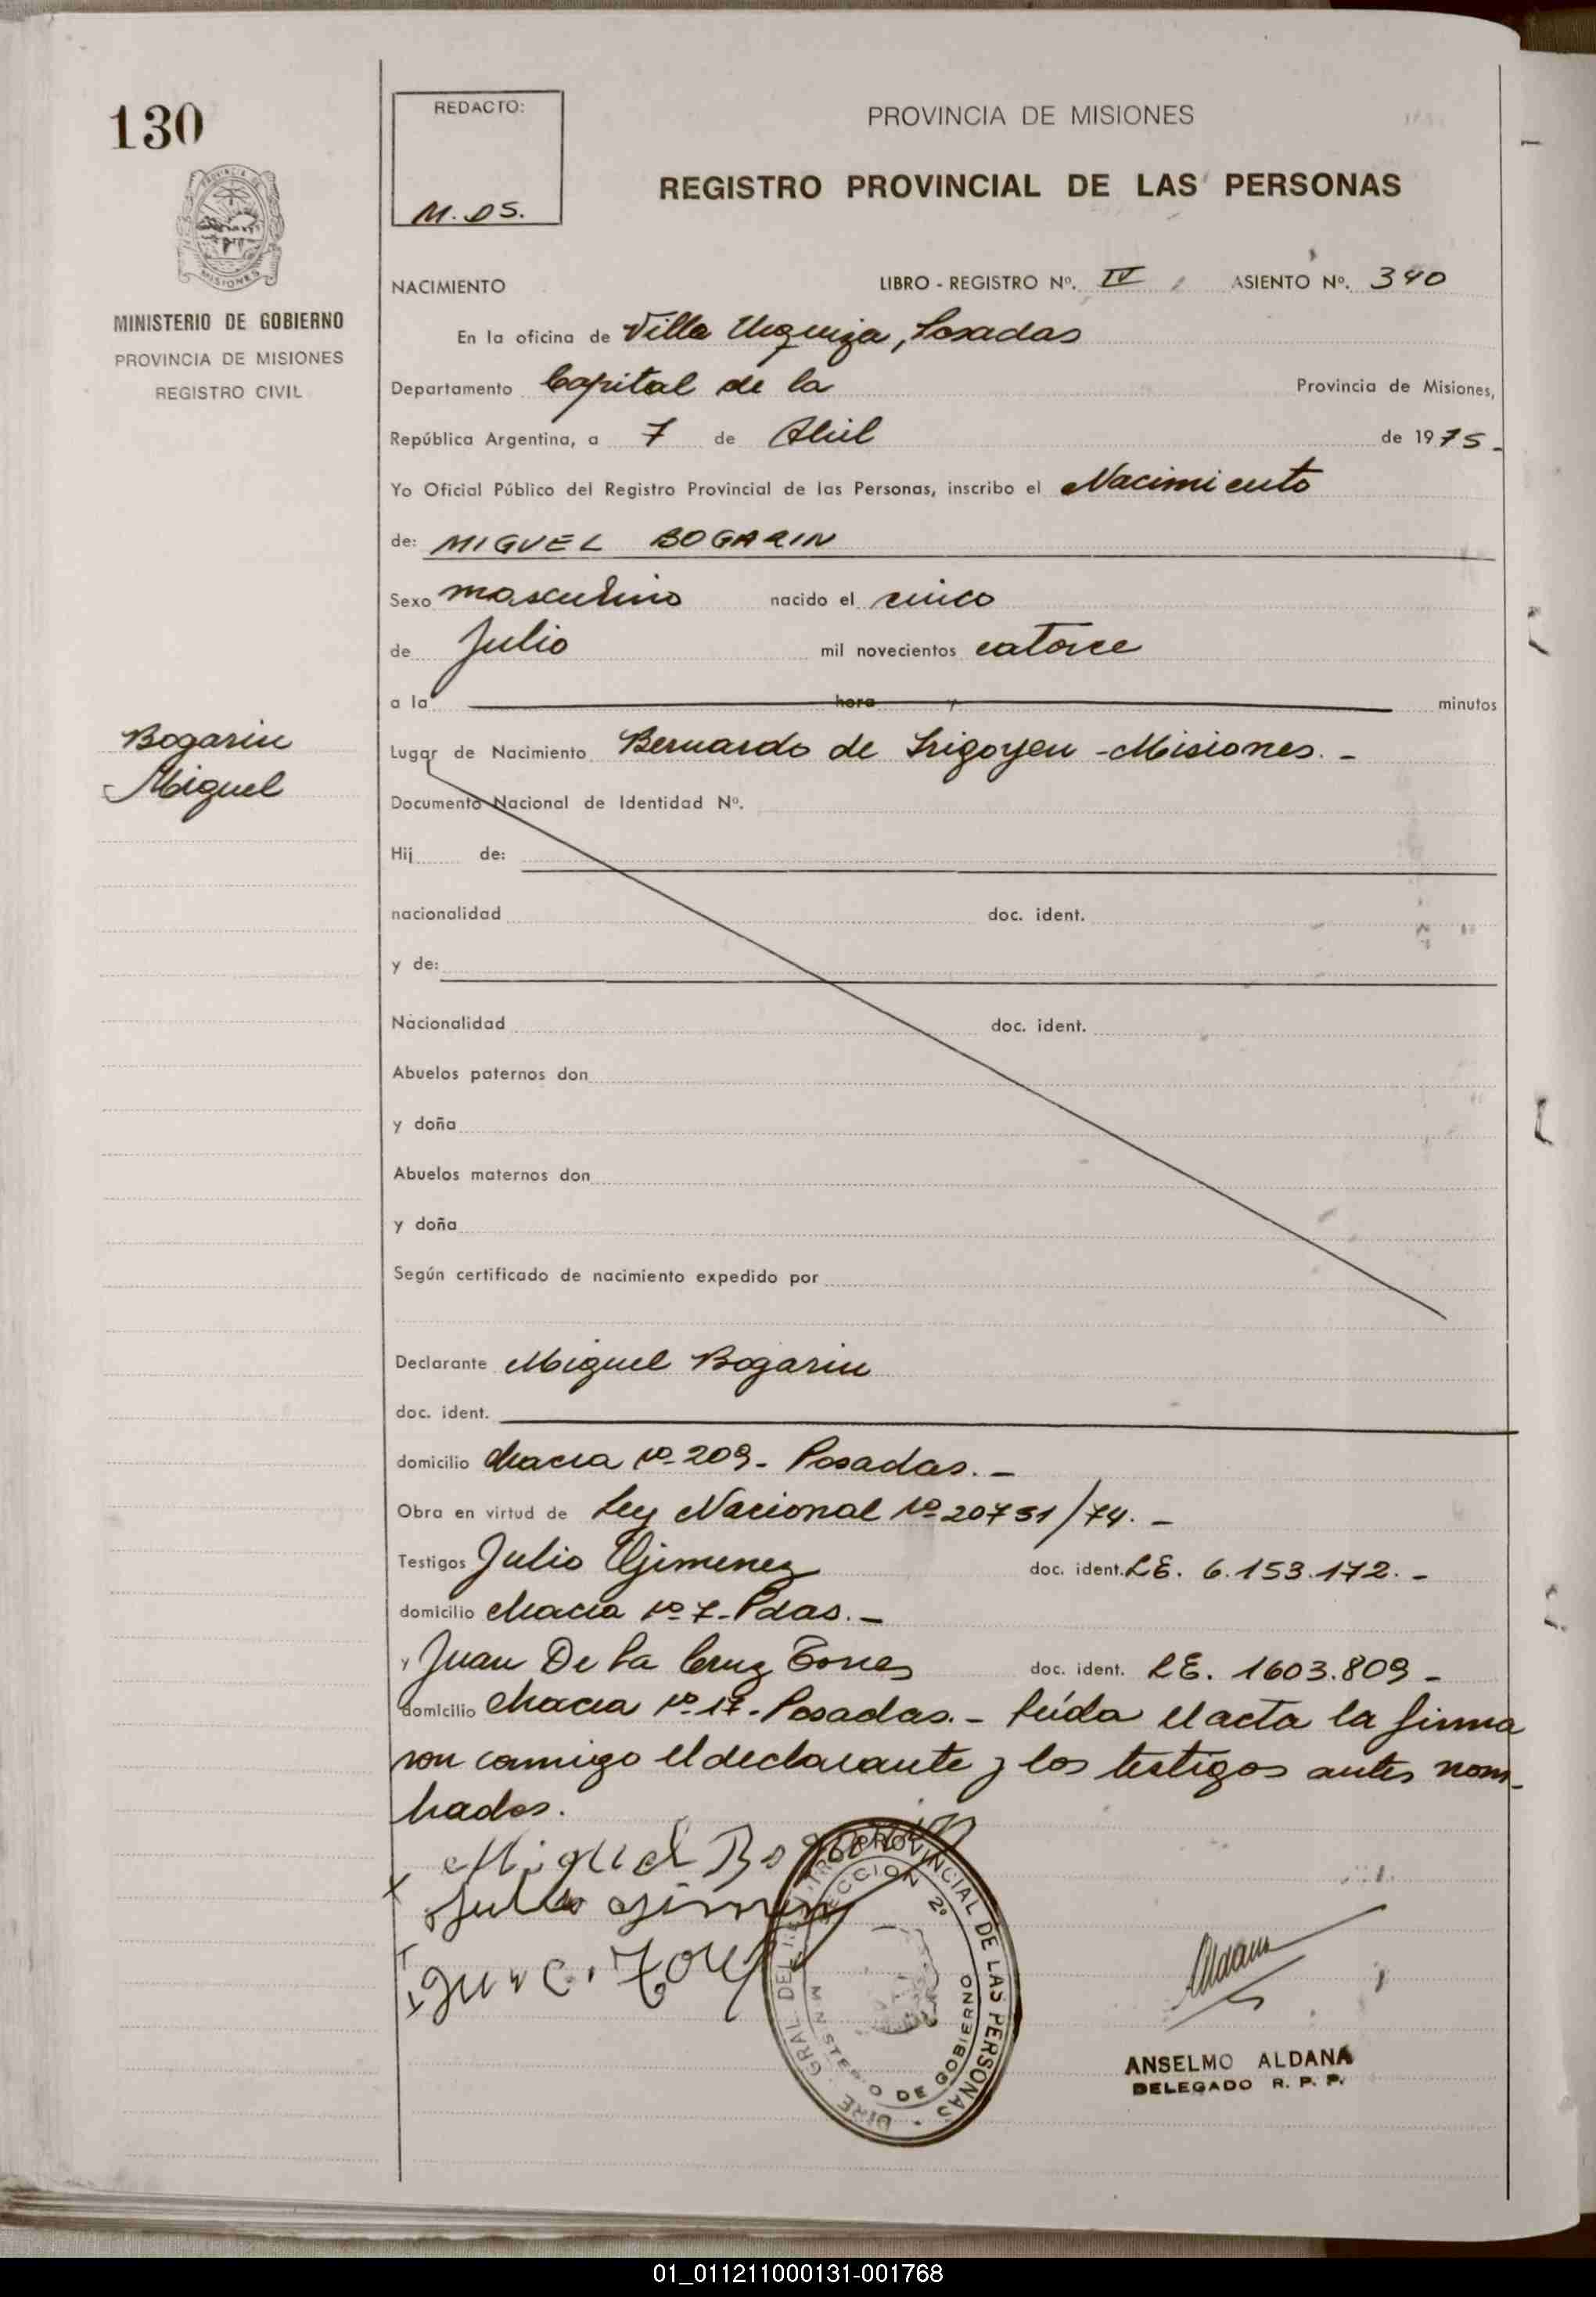 130
PROVINCIA DE
MISIONES
MINISTERIO DE GOBIERNO
PROVINCIA DE MISIONES
REGISTRO CIVIL
REDACTO:
M. DS.
PROVINCIA DE MISIONES
REGISTRO PROVINCIAL DE LAS PERSONAS
NACIMIENTO LIBRO - REGISTRO Nº. IV ASIENTO Nº. 340
En la oficina de Villa Urquiza, Posadas
Departamento Capital de la Provincia de Misiones,
República Argentina, a 7 de Abril de 1975.-
Yo Oficial Público del Registro Provincial de las Personas, inscribo el Nacimiento
de: MIGUEL BOGARIN
Sexo masculino nacido el cinco
de Julio mil novecientos catorce
a la hora y minutos
Bogarin
Miguel
Lugar de Nacimiento Bernardo de Irigoyen - Misiones. -
Documento Nacional de Identidad Nº.
Hij de:
nacionalidad doc. ident.
y de:
Nacionalidad doc. ident.
Abuelos paternos don
y doña
Abuelos maternos don
y doña
Según certificado de nacimiento expedido por
Declarante Miguel Bogarin
doc. ident.
domicilio Chacra Nº 209 - Posadas. -
Obra en virtud de Ley Nacional Nº 20751/74. -
Testigos Julio Gimenez doc. ident. L.E. 6.153.172. -
domicilio Chacra Nº 7 - Pdas. -
y Juan De La Cruz Torres doc. ident. L.E. 1603.809 -
domicilio Chacra Nº 17 - Posadas. - Leída el acta la firma
ron conmigo el declarante y los testigos antes nom-
brados.
Miguel Bogarin
Julio Gimenez
DIRE. GRAL. DEL REGISTRO PROVINCIAL DE LAS PERSONAS
SECCION 2º
MINISTERIO DE GOBIERNO
Aldana
ANSELMO ALDANA
DELEGADO R. P. P.
01_011211000131-001768